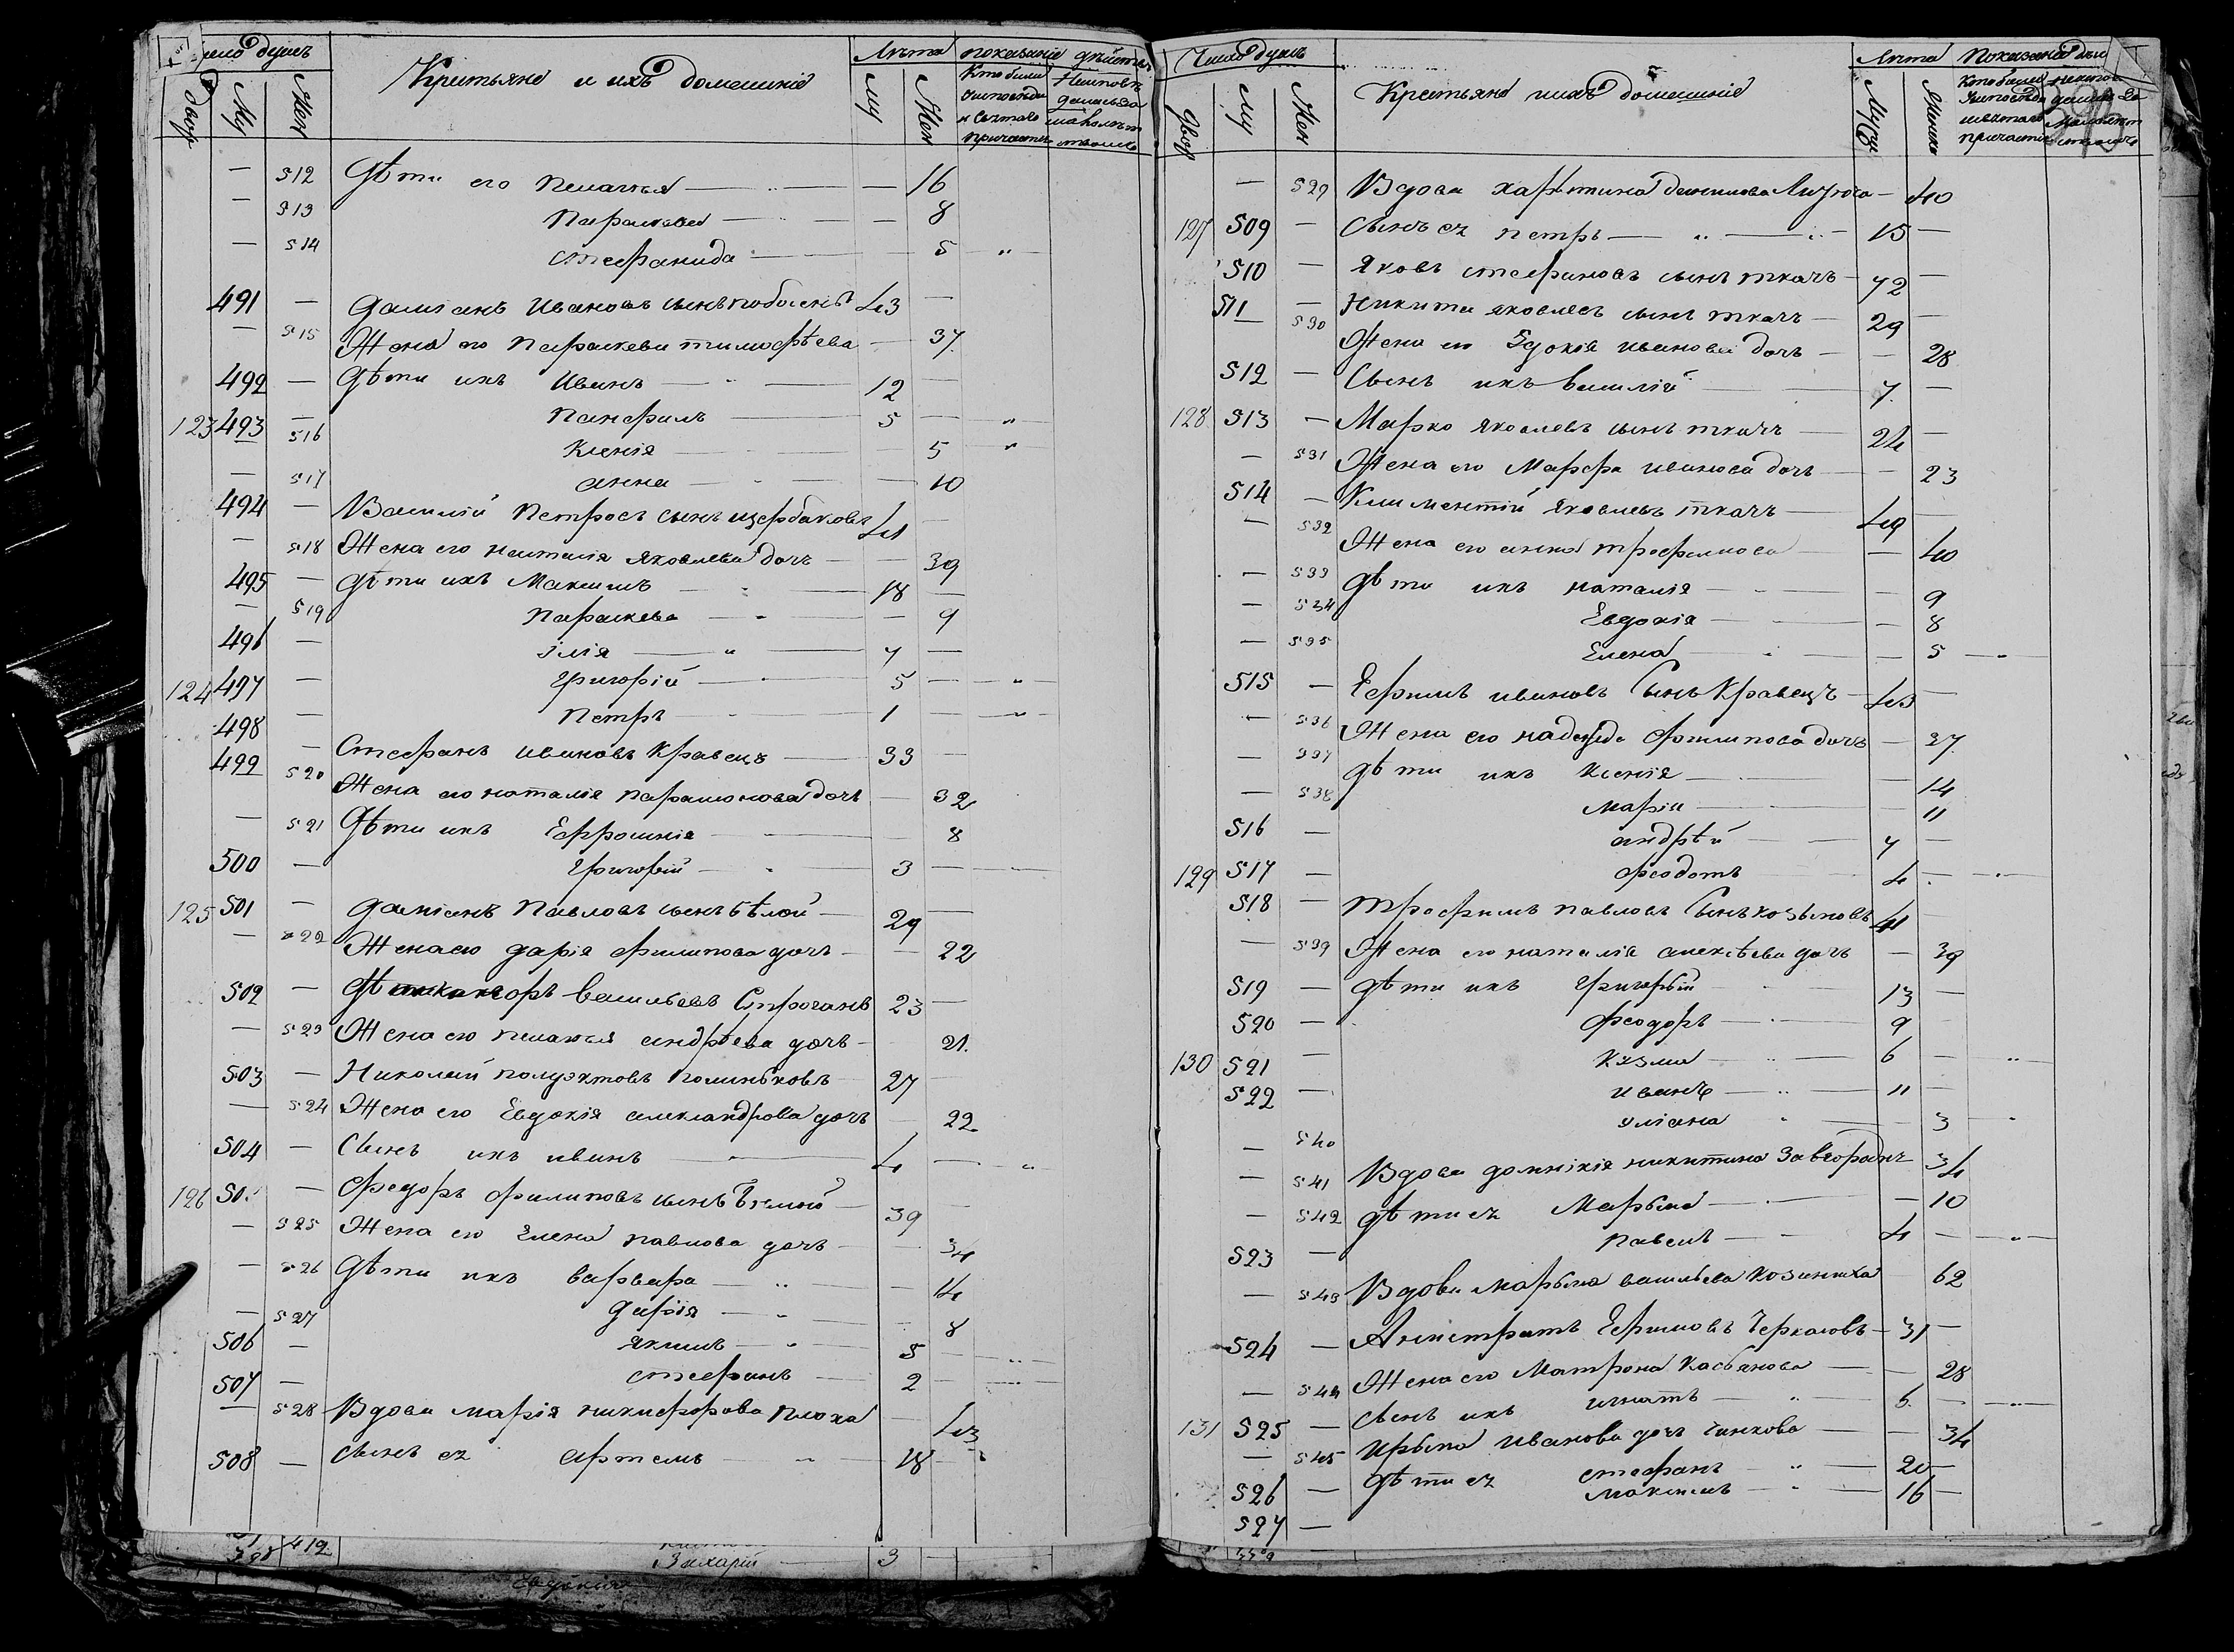 Число душъ
Крестьяне и ихъ домашніе
Лѣта
показаніе дѣйства
двор
Му
Жен
Му
Жен
Кто были
у исповѣди
и святаго
причастія
— 512 Дѣти его Пелагея — 16
— 513 Параскева — 8
— 514 Стефанида — 5 "
491 — Даміанъ Ивановъ сынъ 43 —
— 515 Жена его Параскева тимофѣева — 37
492 — Дѣти ихъ Иванъ 12 —
123 493 — Панфилъ 5 — "
516 Ксенія 5 "
— 517 анна — 10
494 — Василій Петровъ сынъ щербаковъ 41 —
— 518 Жена его наталія яковлева дочь — 39
495 — дѣти ихъ Максимъ 18 —
— 519 Параскева — 9
496 — Илія 7 —
124 497 — Григорій 5 — "
498 — Петръ 1 — "
499 — Стефанъ ивановъ Кравецъ 33 —
520 Жена его наталія парамонова дочь — 32
— 521 Дѣти ихъ Ефросинія 8
500 — Григорій 3 —
125 501 — даміанъ Павловъ сынъ бѣлой 29 —
— 522 Жена его дарія филипова дочь — 22
502 — васильевъ 23 —
— 523 Жена его пелагея андрѣева дочь — 21.
503 — Николай полуэктовъ 27 —
— 524 Жена его Евдокія александрова дочь — 22
504 — Сынъ ихъ иванъ 4 — "
126 505 — Федоръ филиповъ сынъ бѣлой 39 —
— 525 Жена его Елена павлова дочь — 34
— 526 Дѣти ихъ варвара — 14
— 527 Дарія — 8
506 — якимъ 5 — "
507 — стефанъ 2 — "
— 528 Вдова марія никифорова плоха — 43
508 — сынъ ея Артемъ 18 —
412
Захарій 3 —
Число душъ
Крестьяне и ихъ домашніе
Лѣта
Показаніе дѣй
двор
Му
Жен
Муж
Женск
Кто были
у исповѣди
и святаго
причастія
— 529 Вдова харитина 40
127 509 — Сынъ ея петръ 15 —
510 — Яковъ стефановъ сынъ ткачъ 72 —
511 — Никита яковлевъ сынъ ткачъ 29 —
530 Жена его Эдокія иванова дочь — 28
512 — Сынъ ихъ василій 7 —
128 513 — Марко яковлевъ сынъ ткачъ 24 —
— 531 Жена его Марфа иванова дочь — 23
514 — Климентій яковлевъ ткачъ 49 —
— 532 Жена его анна трофимова — 40
— 533 Дѣти ихъ наталія — 9
— 534 Евдокія — 8
— 535 Елена — 5 "
515 — Ефимъ ивановъ Сынъ Кравецъ 43 —
— 536 Жена его надежда филипова дочь — 37
— 537 Дѣти ихъ Ксенія — 14
— 538 Марія — 11
516 — андрѣй 7 —
129 517 — феодотъ 4 — "
518 — трофимъ павловъ Сынъ козьновъ 41
— 539 Жена его наталія алексѣева дочь — 39
519 — дѣти ихъ Григорій 13 —
520 — феодоръ 9 —
130 521 — Кузма 6 — "
522 — иванъ 11 —
— 540 уліана 3 "
— 541 Вдова домнікія никитина 34
— 542 дѣти ея Марѣна — 10
523 — павелъ 4 — "
— 543 Вдова марѣна васильева 62
524 — Анистратъ Ефимовъ Черкасовъ 31 —
— 544 Жена его Матрона Касьянова — 28
131 525 — Сынъ ихъ игнатъ 6 — "
— 545 Ирына Иванова дочь — 34
526 — дѣти ея стефанъ 20 —
527 — максимъ 16 —